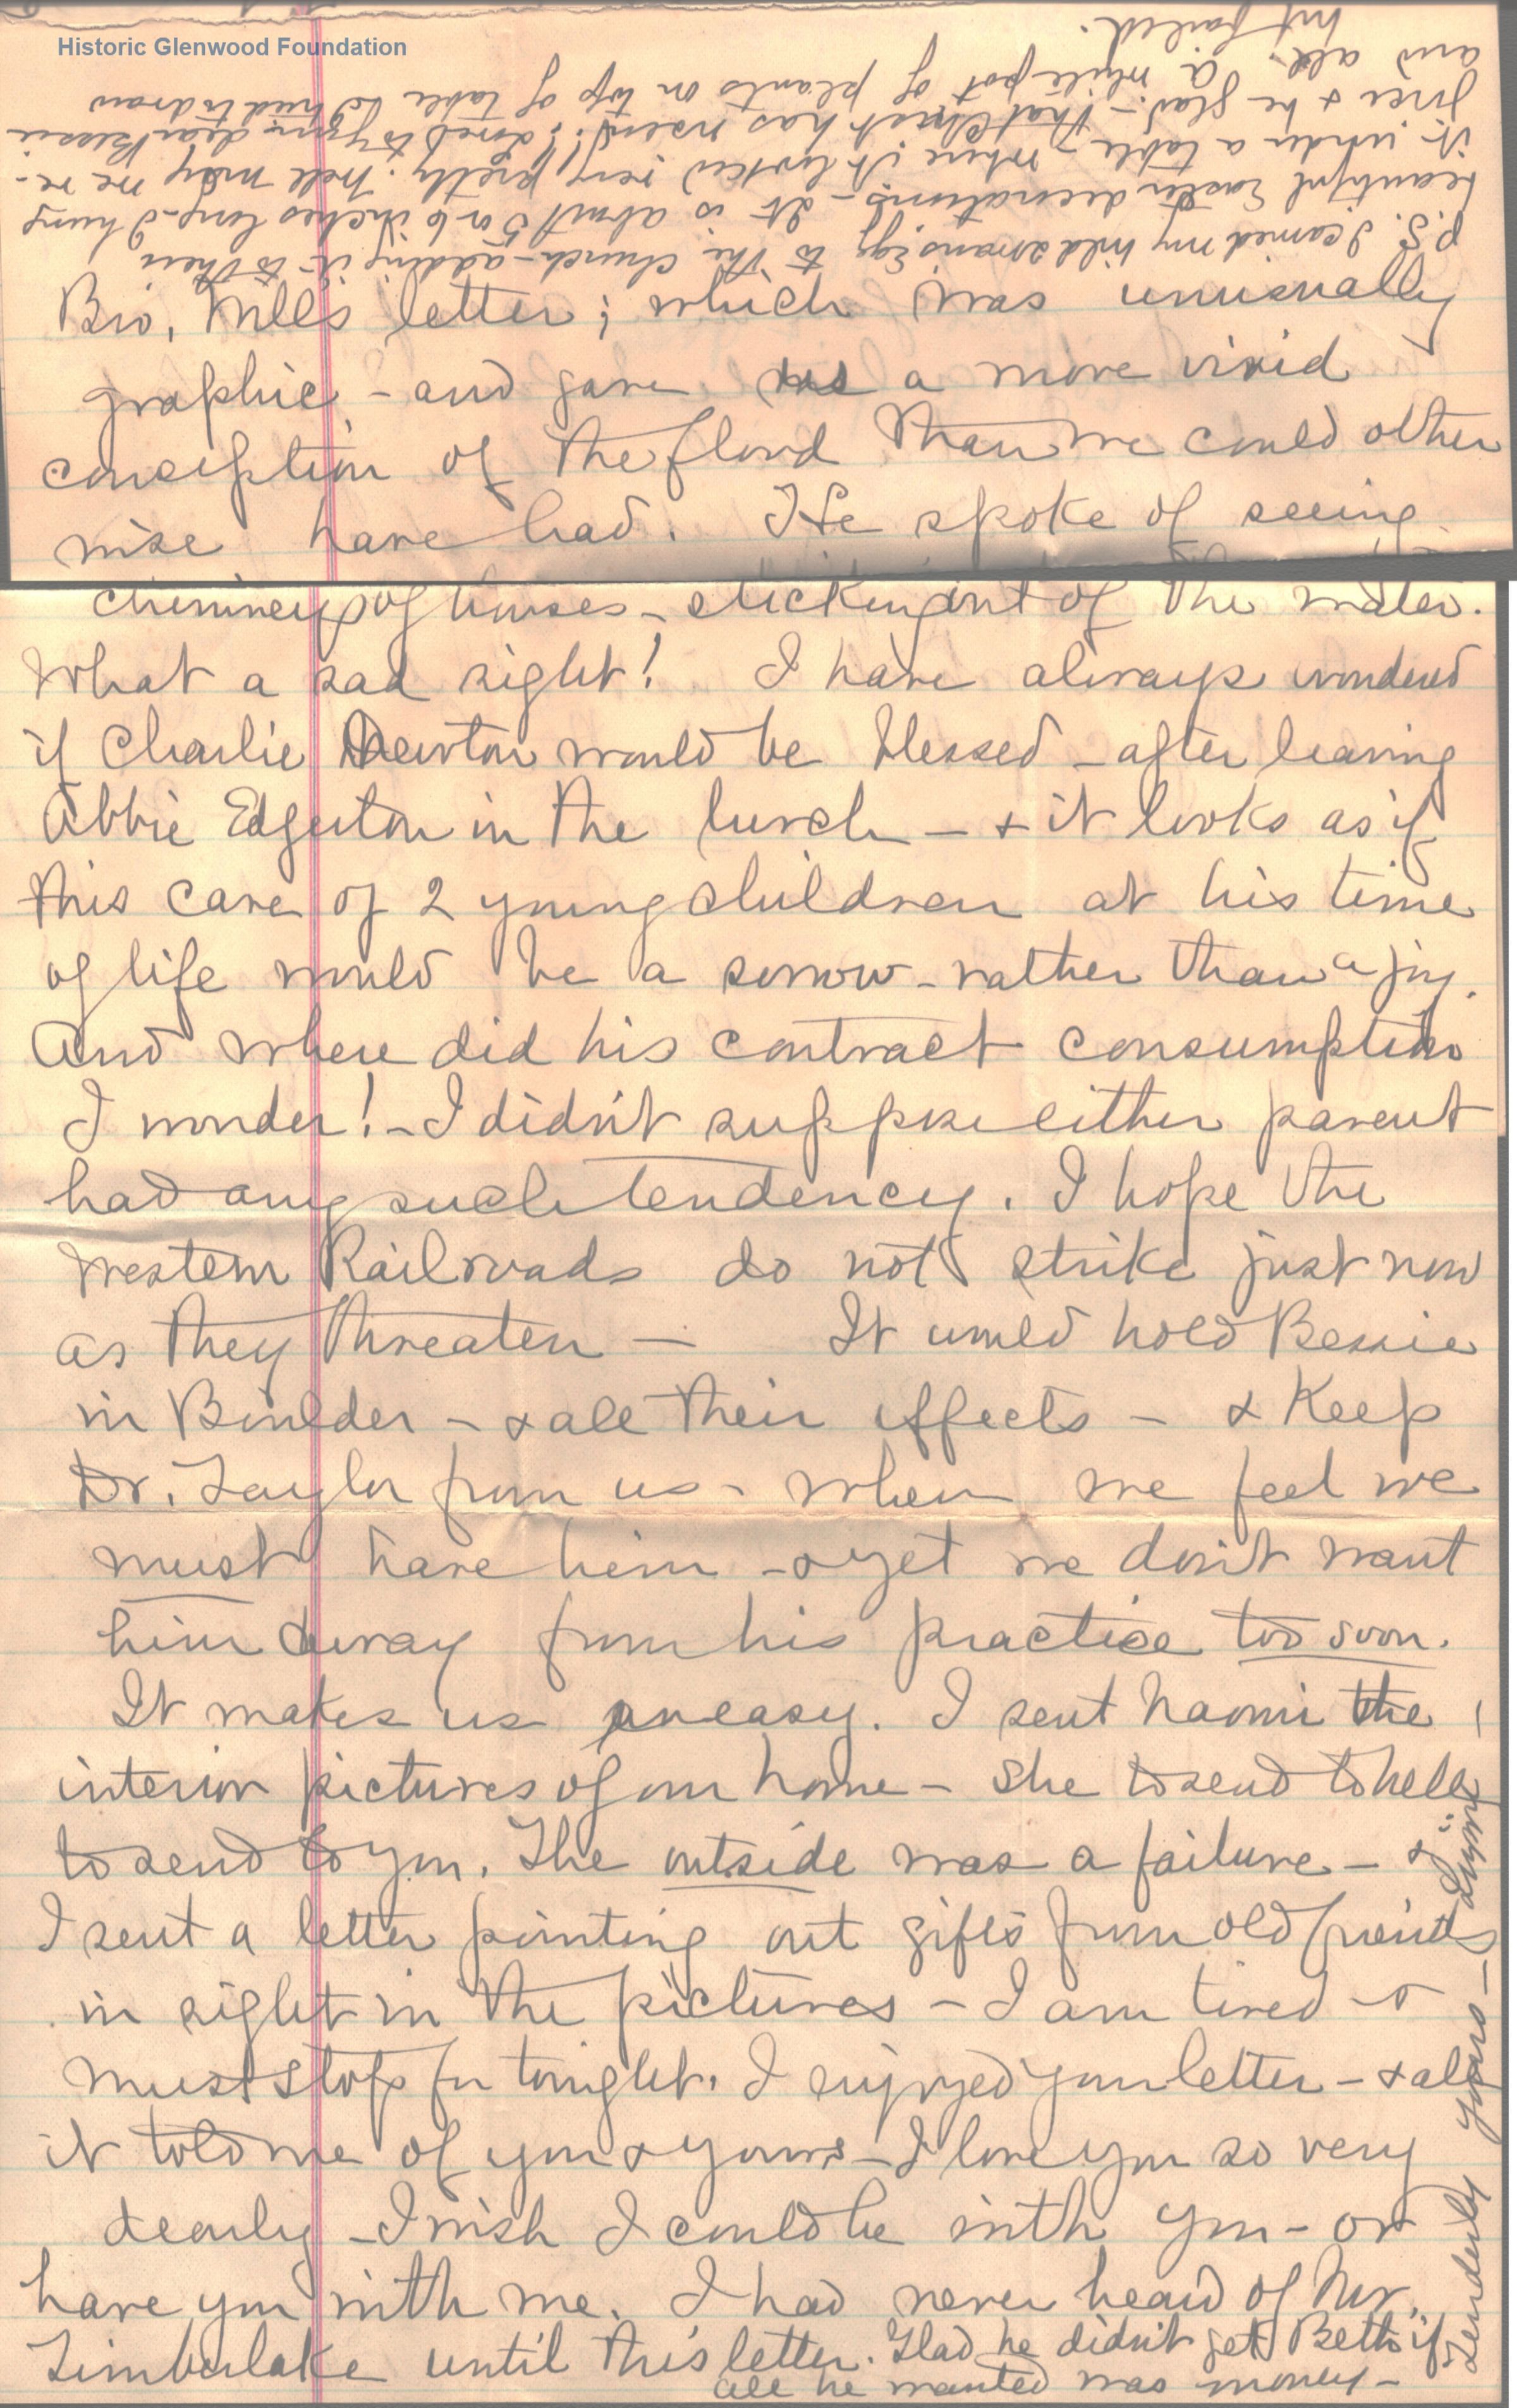 Historic Glenwood Foundation
P.S. I carried my wild swans Egg to the church - adding it to their
beautiful Easter decorations - It is about 5 or 6 inches long - I hung
it under a table - where it looked very pretty. Well may we re-
joice & be glad - that Christ has risen! Love to you dear Bessie
and all. A white pot of plants on top of table I tried to draw
but failed.
Bro. Will's letter; which was unusually
graphic - and gave us a more vivid
conception of the flood than we could other
wise have had. He spoke of seeing
chimneys of houses - sticking out of the water.
What a sad sight! I have always wondered
if Charlie Newton would be blessed - after leaving
Abbie Edgerton in the lurch - & it looks as if
this care of 2 young children at his time
of life would be a sorrow - rather than a joy.
And where did his contract consumption
I wonder! - I didn't suppose either parent
had any such tendency. I hope the
Western Railroads do not strike just now
as they threaten - It would hold Bessie
in Boulder - & all their effects - & keep
Dr. Taylor from us - when we feel we
must have him - & yet we don't want
him away from his practice too soon.
It makes us uneasy. I sent Naomi the
interior pictures of our home - she to send to Nell
to send to you. The outside was a failure - &
I sent a letter pointing out gifts from old friends
in sight in the pictures - I am tired - &
must stop for tonight. I enjoyed your letter - & all
it told me of you & yours - I love you so very
dearly - I wish I could be with you - or
have you with me. I had never heard of Mr.
Timberlake until this letter. Glad he didn't get Beth if
all he wanted was money -
Tenderly yours -